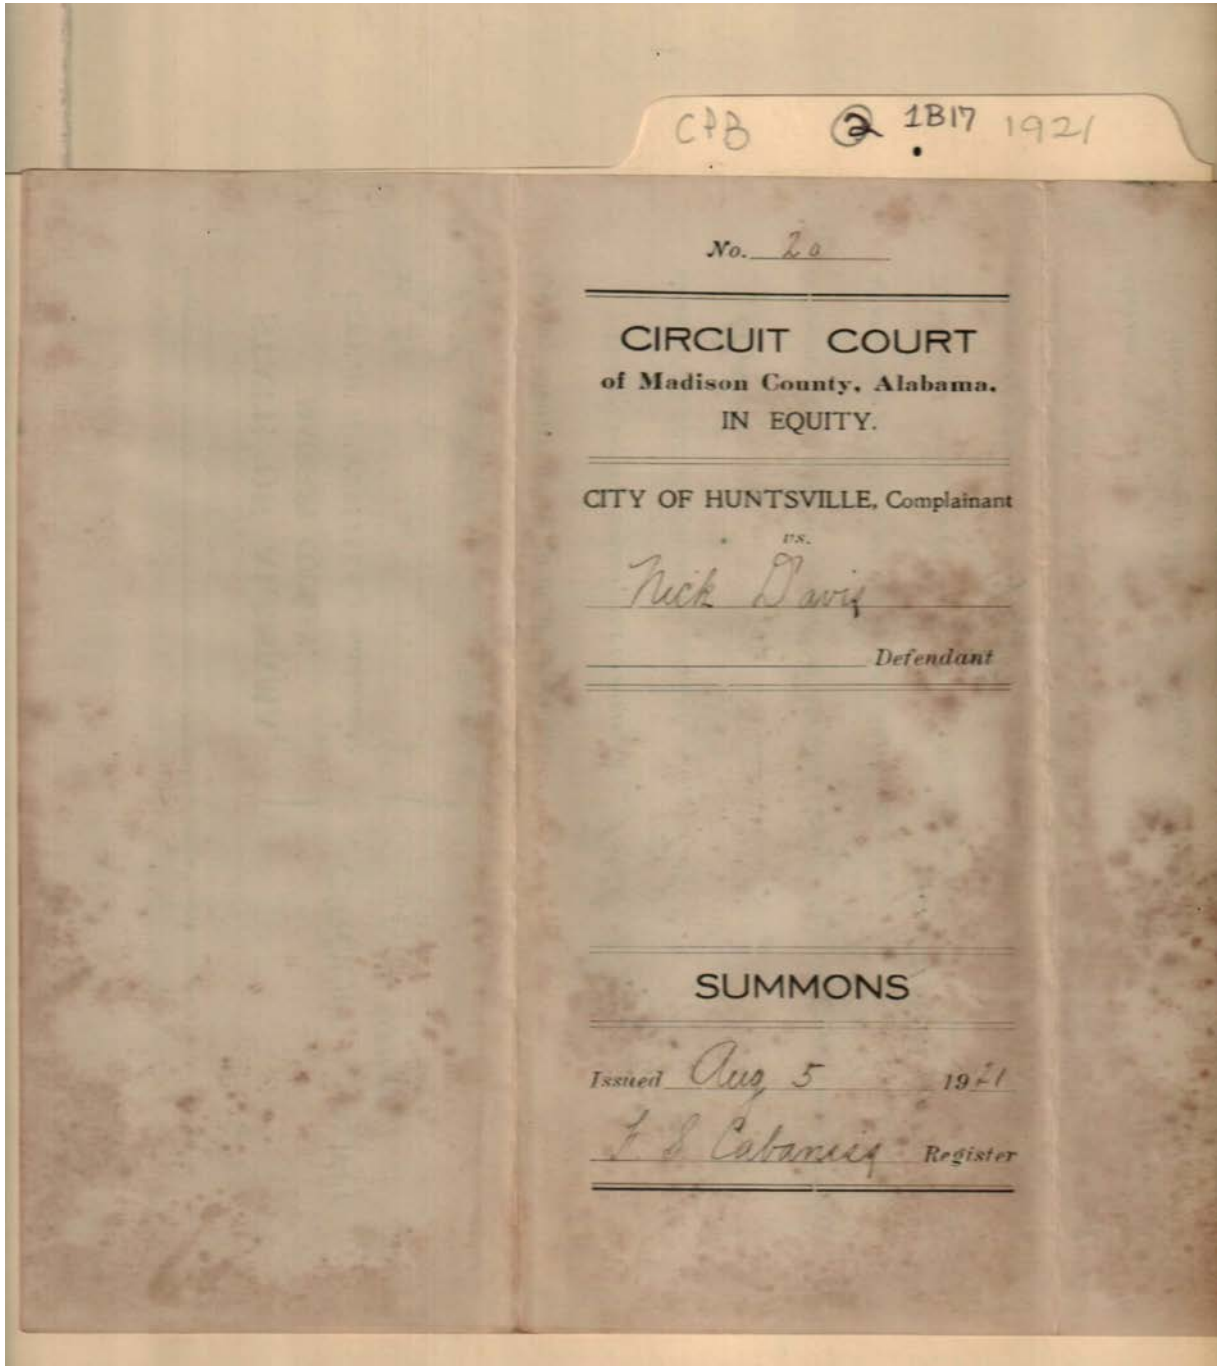 CPB ② 1B17 1921
No. 20
CIRCUIT COURT
of Madison County, Alabama.
IN EQUITY.
CITY OF HUNTSVILLE, Complainant
vs.
Nick Davis
Defendant
SUMMONS
Issued Aug 5 1921
F S Cabaniss Register